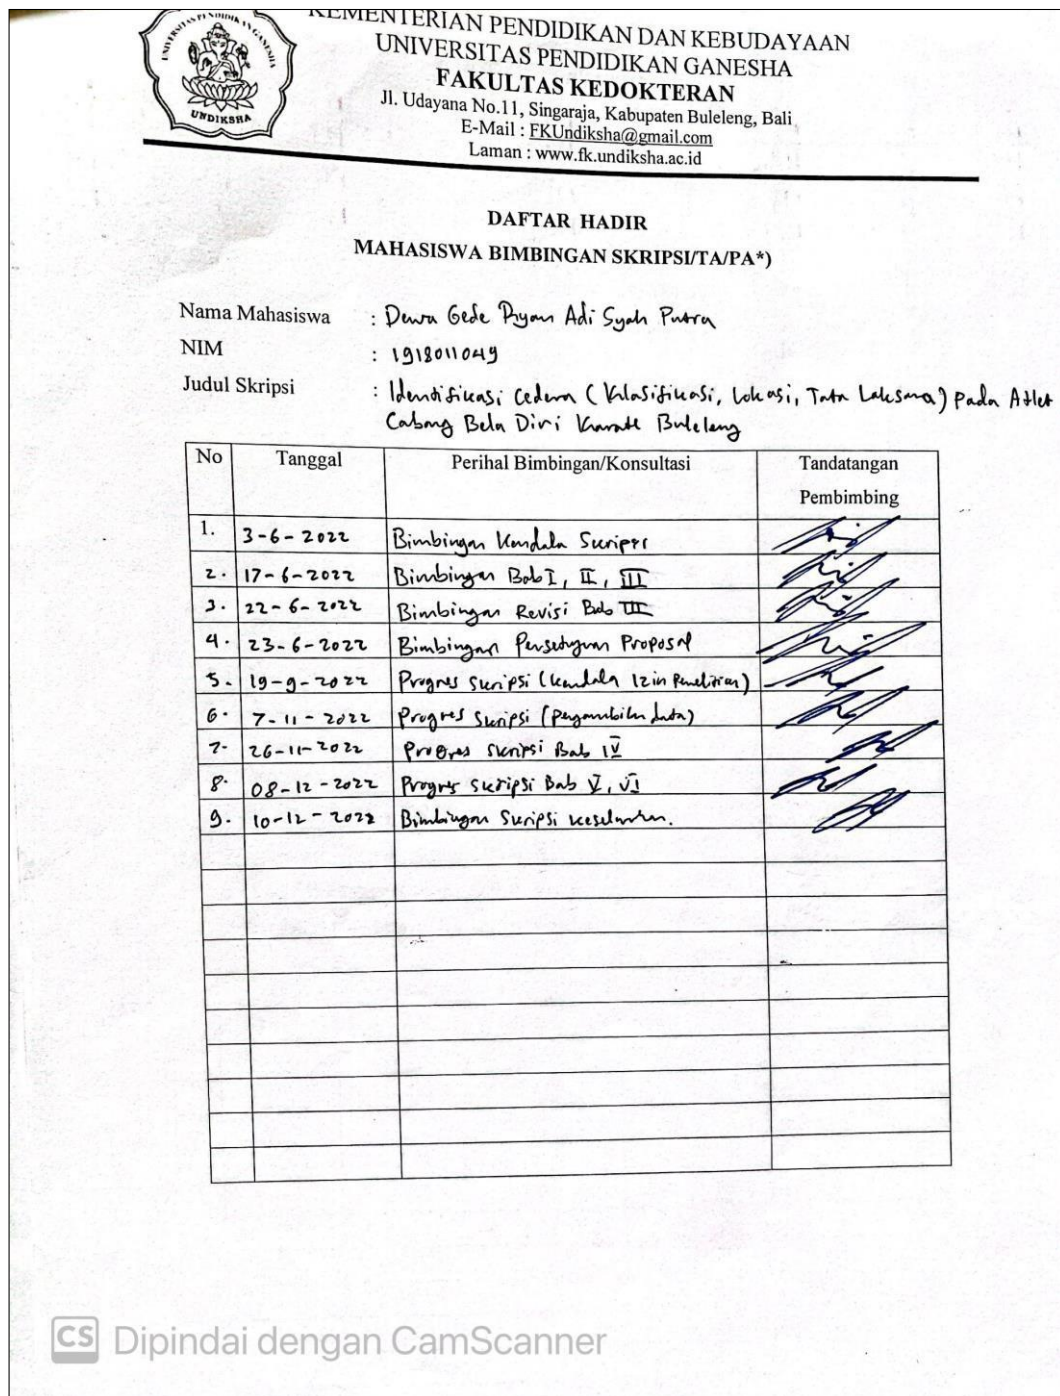 UNIVERSITAS PENDIDIKAN GANESHA
UNDIKSHA
KEMENTERIAN PENDIDIKAN DAN KEBUDAYAAN
UNIVERSITAS PENDIDIKAN GANESHA
FAKULTAS KEDOKTERAN
Jl. Udayana No.11, Singaraja, Kabupaten Buleleng, Bali
E-Mail : FKUndiksha@gmail.com
Laman : www.fk.undiksha.ac.id
DAFTAR HADIR
MAHASISWA BIMBINGAN SKRIPSI/TA/PA*)
Nama Mahasiswa : Dewa Gede Ryan Adi Syah Putra
NIM : 1918011049
Judul Skripsi : Identifikasi Cedera (Klasifikasi, Lokasi, Tata Laksana) pada Atlet
Cabang Bela Diri Karate Buleleng
No Tanggal Perihal Bimbingan/Konsultasi Tandatangan
Pembimbing
1. 3-6-2022 Bimbingan Kendala Skripsi
2. 17-6-2022 Bimbingan Bab I, II, III
3. 22-6-2022 Bimbingan Revisi Bab III
4. 23-6-2022 Bimbingan Persetujuan Proposal
5. 19-9-2022 Progres Skripsi (Kendala Izin Penelitian)
6. 7-11-2022 Progres Skripsi (Pengambilan data)
7. 26-11-2022 Progres Skripsi Bab IV
8. 08-12-2022 Progres Skripsi Bab V, VI
9. 10-12-2022 Bimbingan Skripsi keseluruhan.
CS Dipindai dengan CamScanner